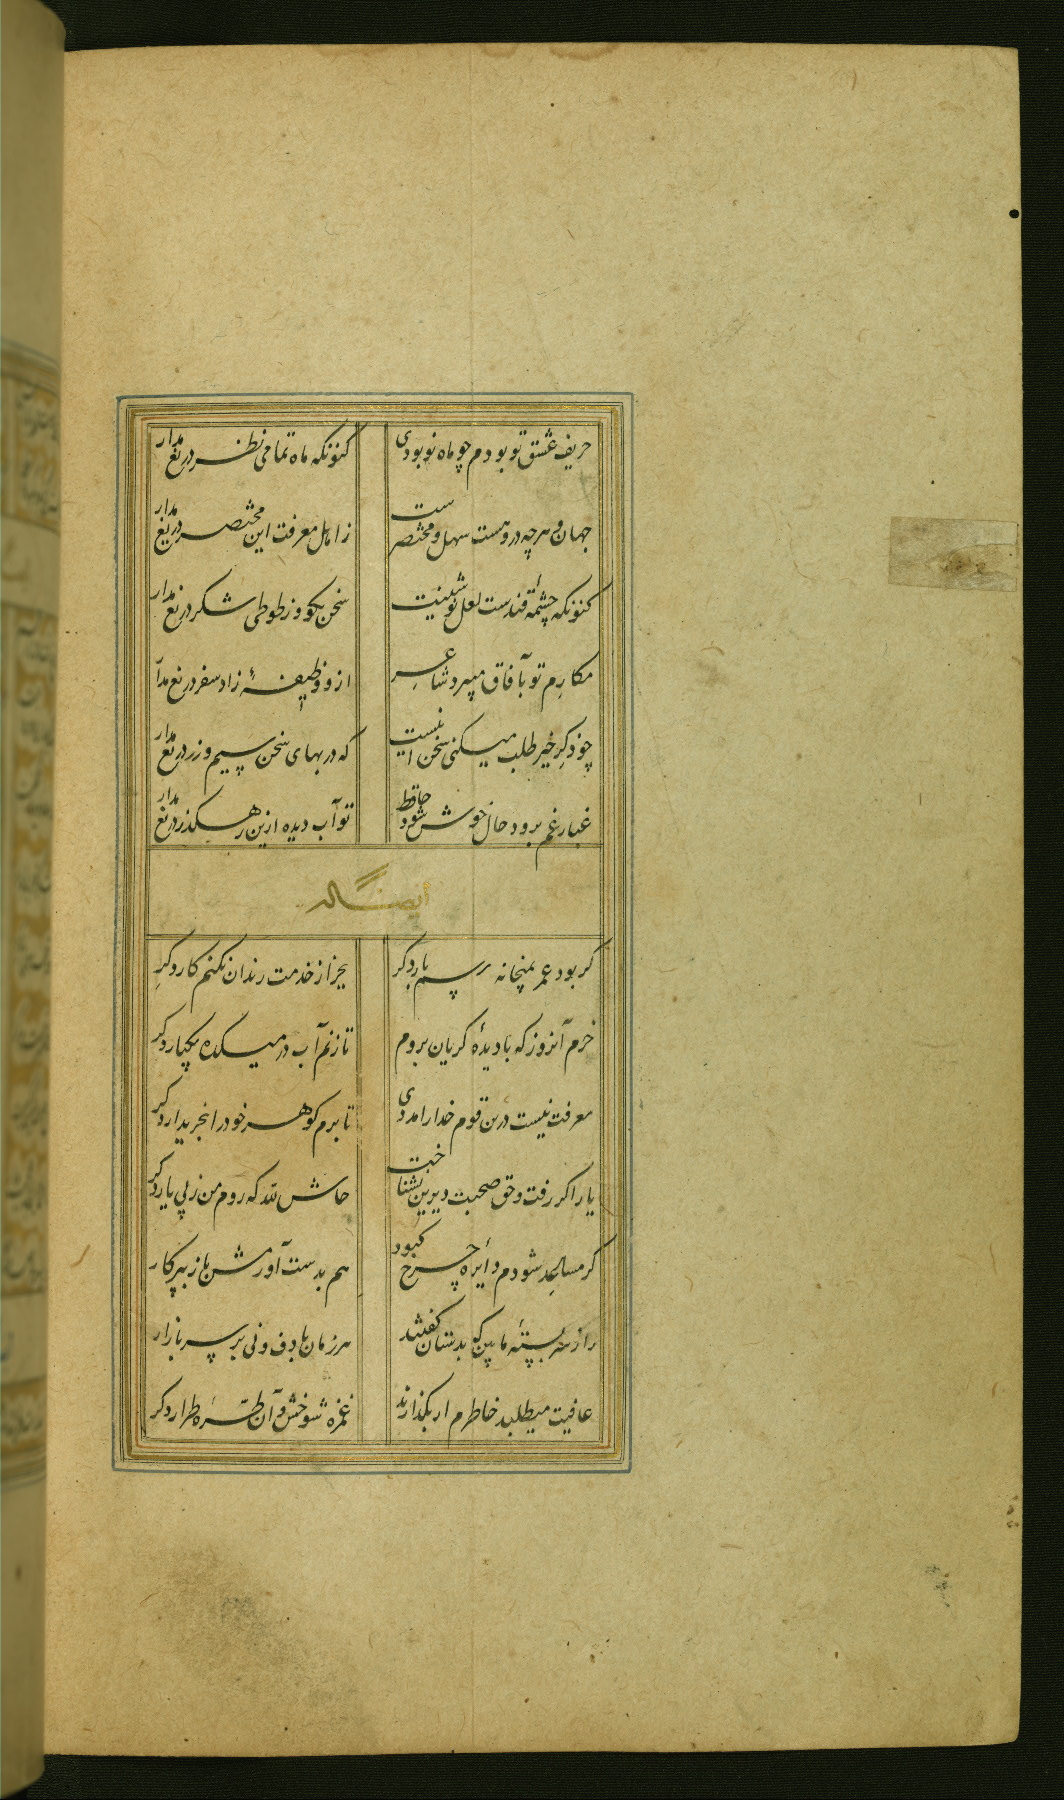 حریف عشق تو بودم چو ماه نو بودی کنونکه ماه تمامی نظر دریغ مدار
جهان و هرچه دروهست سهل و مختصر ست ز اهل معرفت این مختصر دریغ مدار
کنونکه چشمهٔ قندست لعل نوشینت سخن بکو و ز طوطی شکر دریغ مدار
مکارم تو بآفاق میبرد شاعر ازو وظیفهٔ زاد سفر دریغ مدار
چو ذکر خیر طلب میکنی سخن اینست که در بهای سخن سیم و زر دریغ مدار
غبار غم برود حال خوش شود حافظ تو آب دیده ازین رهکذر دریغ مدار
ایضا له
کر بود عمر بمیخانه رسم بار دکر بجز از خدمت رندان نکنم کار دکر
خرم آنروز که با دیدهٔ کریان بروم تا زنم آب در میکده یکبار دکر
معرفت نیست درین قوم خدا را مددی تا برم کوهر خود را بخریدار دکر
یار اکر رفت و حق صحبت دیرین نشناخت حاش لله که روم من ز پی یار دکر
کر مساعد شودم دایرهٔ چرخ کبود هم بدست آورمش باز بپرکار
راز سربستهٔ ما بین که بدستان کفتند هر زمان با دف و نی بر سر بازار
عافیت میطلبد خاطرم ار بکذارند غمزه شوخش و آن طرهٔ طرار دکر